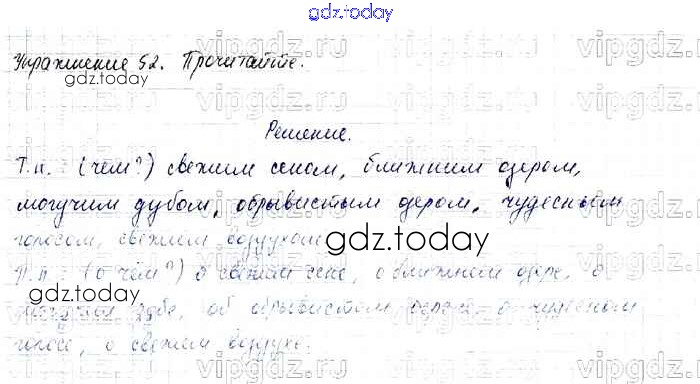 gdz.today
Упражнение 52. Прочитайте.
gdz.today
Решение.
Т.п. (чем?) свежим сеном, ближним озером,
могучим дубом, обрывистым озером, чудесным
голосом, свежим воздухом
gdz.today
П.п. (о чём?) о свежем сене, о ближнем озере, о
gdz.today
могучем дубе, об обрывистом озере, о чудесном
голосе, о свежем воздухе.
vipgdz.today